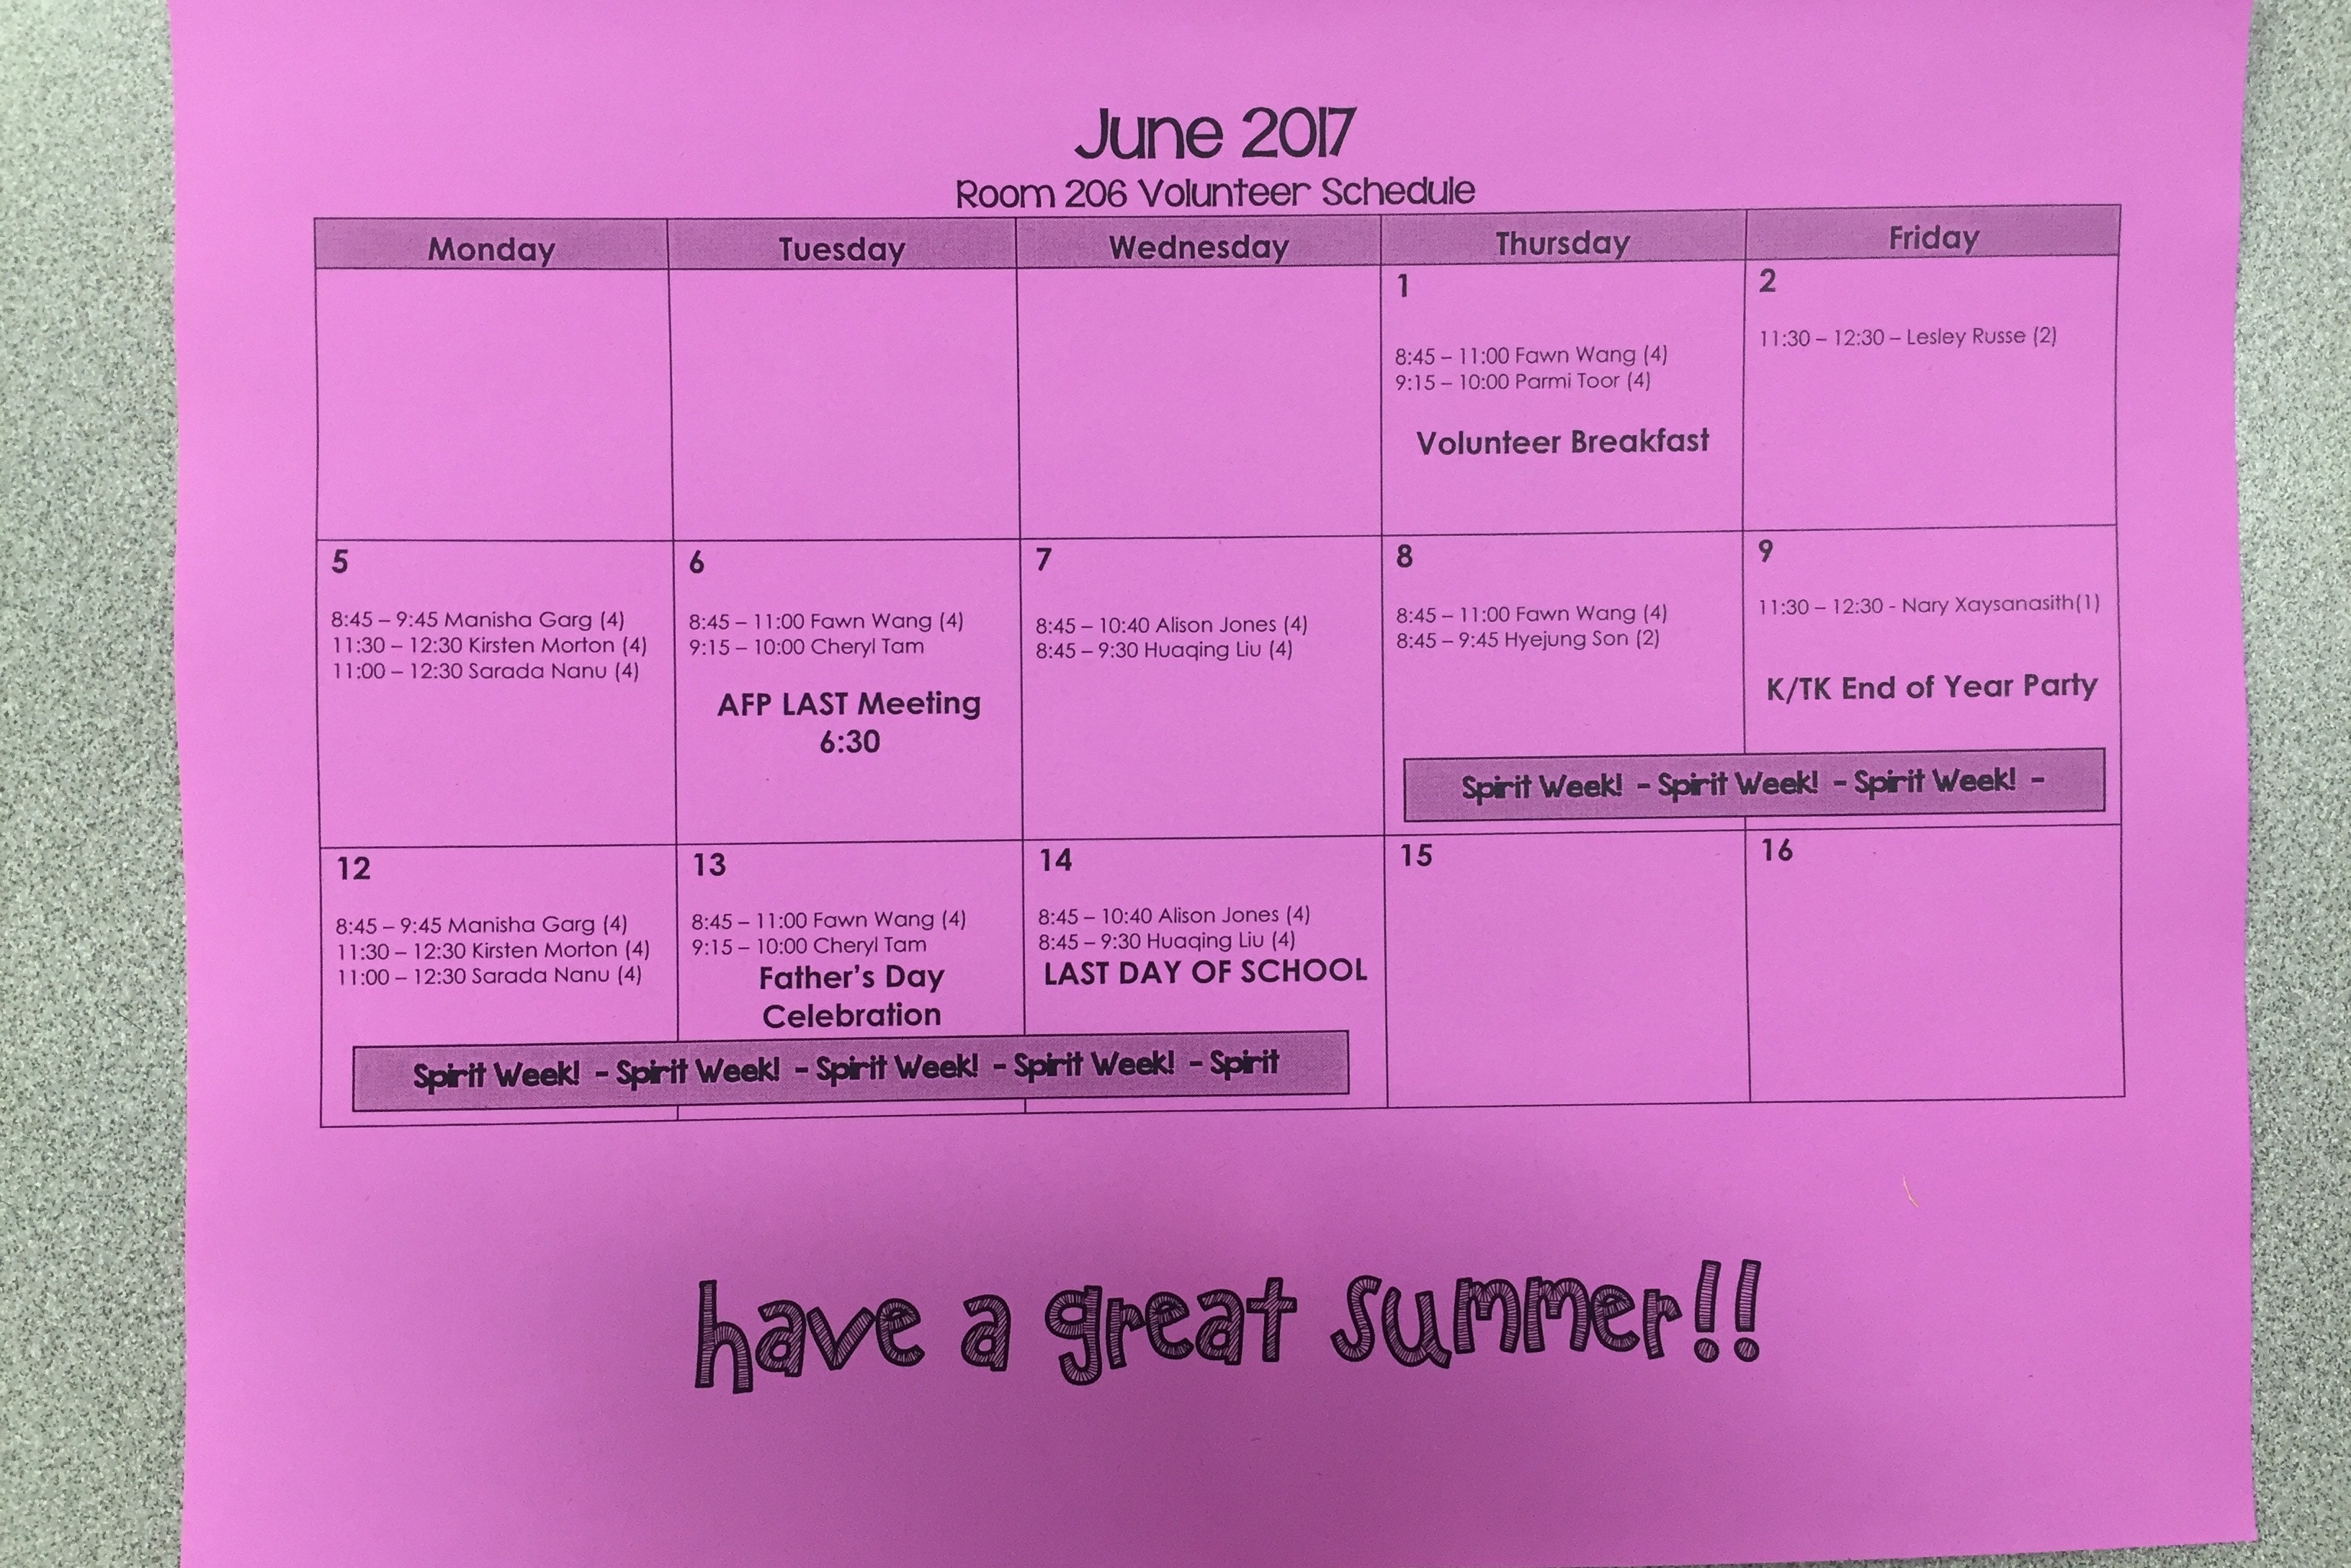 June 2017
Room 206 Volunteer Schedule
Monday
Tuesday
Wednesday
Thursday
Friday
1
8:45 – 11:00 Fawn Wang (4)
9:15 – 10:00 Parmi Toor (4)
Volunteer Breakfast
2
11:30 – 12:30 – Lesley Russe (2)
5
8:45 – 9:45 Manisha Garg (4)
11:30 – 12:30 Kirsten Morton (4)
11:00 – 12:30 Sarada Nanu (4)
6
8:45 – 11:00 Fawn Wang (4)
9:15 – 10:00 Cheryl Tam
AFP LAST Meeting
6:30
7
8:45 – 10:40 Alison Jones (4)
8:45 – 9:30 Huaqing Liu (4)
8
8:45 – 11:00 Fawn Wang (4)
8:45 – 9:45 Hyejung Son (2)
9
11:30 – 12:30 - Nary Xaysanasith(1)
K/TK End of Year Party
Spirit Week! - Spirit Week! - Spirit Week! -
12
8:45 – 9:45 Manisha Garg (4)
11:30 – 12:30 Kirsten Morton (4)
11:00 – 12:30 Sarada Nanu (4)
13
8:45 – 11:00 Fawn Wang (4)
9:15 – 10:00 Cheryl Tam
Father's Day
Celebration
14
8:45 – 10:40 Alison Jones (4)
8:45 – 9:30 Huaqing Liu (4)
LAST DAY OF SCHOOL
15
16
Spirit Week! - Spirit Week! - Spirit Week! - Spirit Week! - Spirit
have a great summer!!